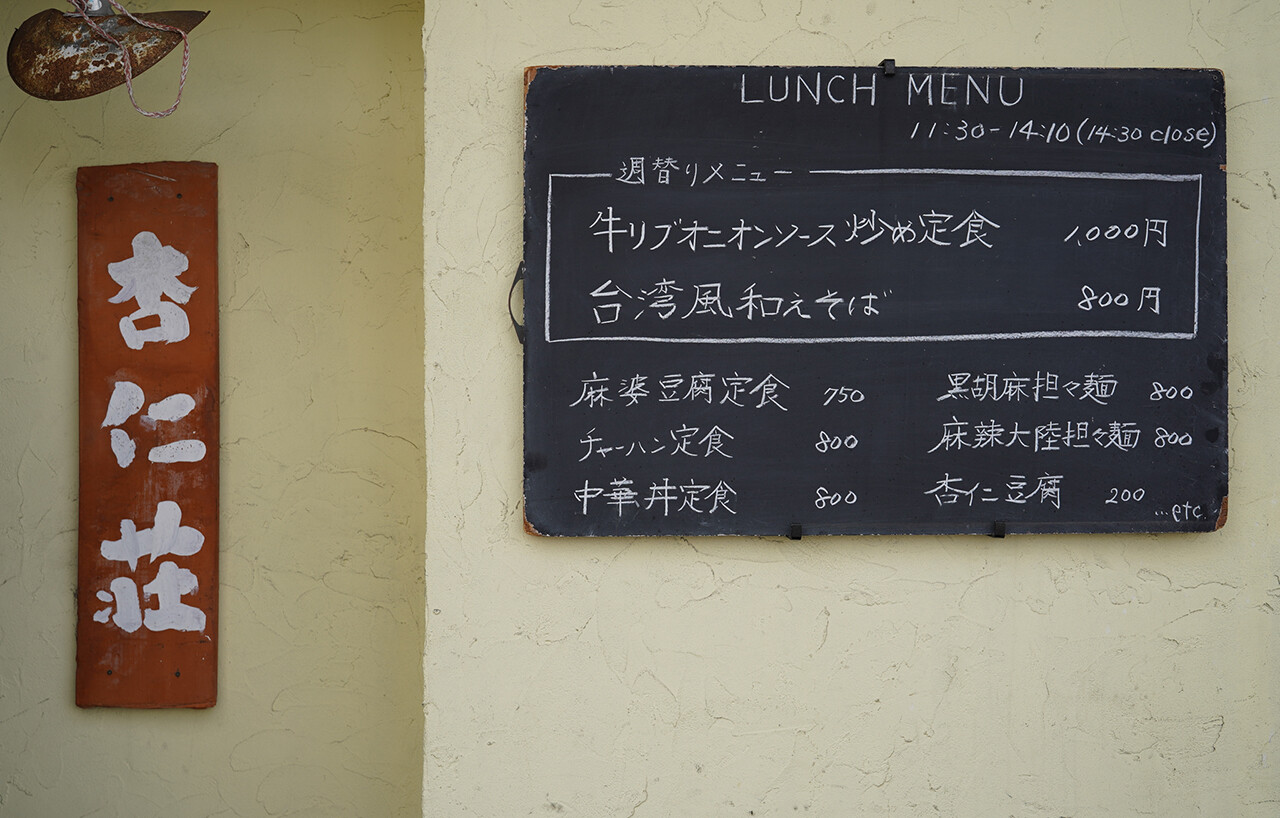 杏仁荘
LUNCH MENU
11:30-14:10(14:30 close)
週替りメニュー
牛リブオニオンソース炒め定食 1,000円
台湾風和えそば 800円
麻婆豆腐定食 750
チャーハン定食 800
中華丼定食 800
黒胡麻担々麺 800
麻辣大陸担々麺 800
杏仁豆腐 200
...etc.